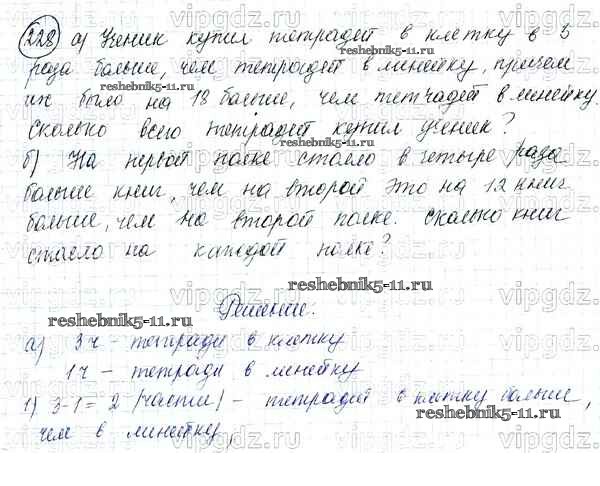 228) а) Ученик купил тетрадей в клетку в 3
раза больше, чем тетрадей в линейку, причем
их было на 18 больше, чем тетрадей в линейку.
Сколько всего тетрадей купил ученик?
б) На первой полке стояло в четыре раза
больше книг, чем на второй это на 12 книг
больше, чем на второй полке. Сколько книг
стояло на каждой полке?
Решение:
а) 3ч - тетради в клетку
1ч - тетради в линейку
1) 3-1=2 (части) - тетрадей в клетку больше,
чем в линейку,
vipgdz.ru
reshebnik5-11.ru